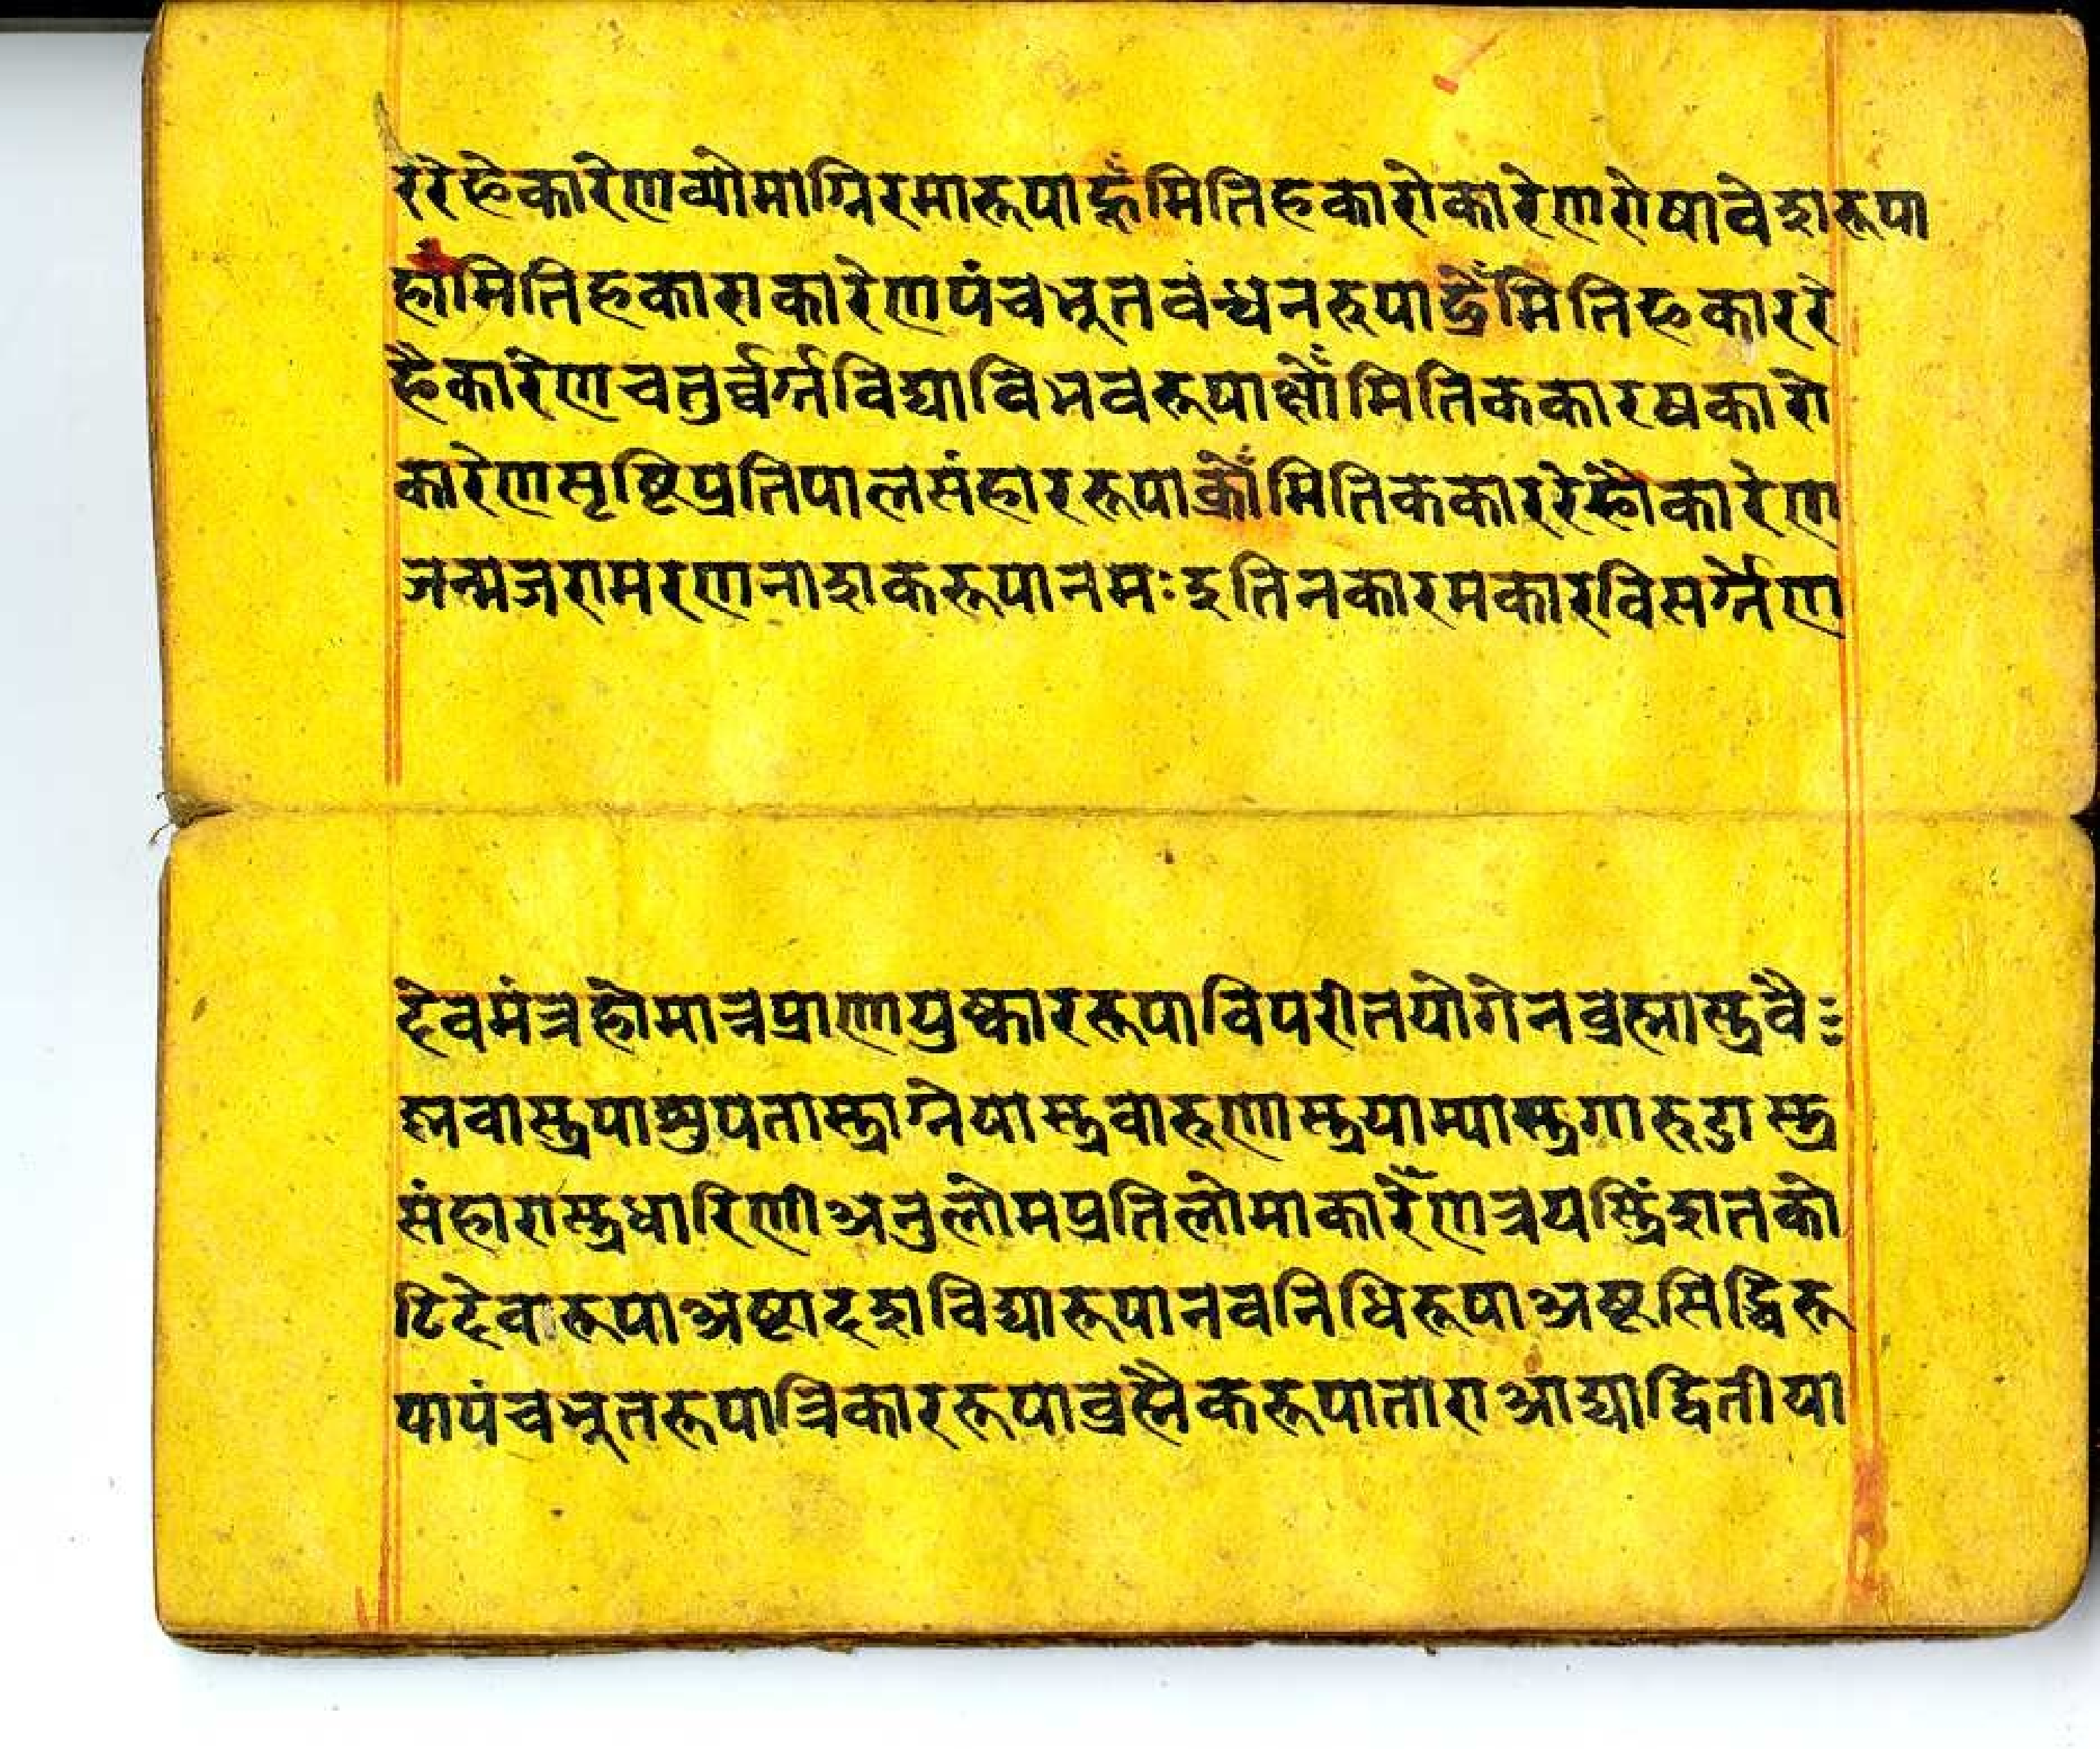 ररेफेकारेणव्योमाग्निरमारूपाह्रूँमितिहकारोकारेणरोषावेशरूपा
हाँमितिहकाराकारेणपंचभूतवंन्धनरुपाफ्रेँमितिफकाररे
फैकारेणचतुर्व्वर्ग्गविद्याविभवरूपाक्षौँमितिककारषकारो
कारेणसृष्टिप्रतिपालसंहाररूपाक्रोँमितिककाररेफोकारेण
जन्मजरामरणनाशकरूपानमःइतिनकारमकारविसर्ग्गेण
देवमंत्रहोमान्नप्राणायुष्काररूपाविपरीतयोगेनब्रह्मास्त्रवै
ष्नवास्त्रपाशुपतास्त्राग्नेयास्त्रवारुणास्त्रयाम्यास्त्रगारुडास्त्र
संहारास्त्रधारिणीअनुलोमप्रतिलोमाकारेँणत्रयस्त्रिंशतको
टिदेवारूपाअष्टादशविद्यारूपानवनिधिरूपाअष्टसिद्धिरू
पापंचभूतरूपात्रिकाररूपाब्रह्मैकरूपाताराआद्याद्वितीया